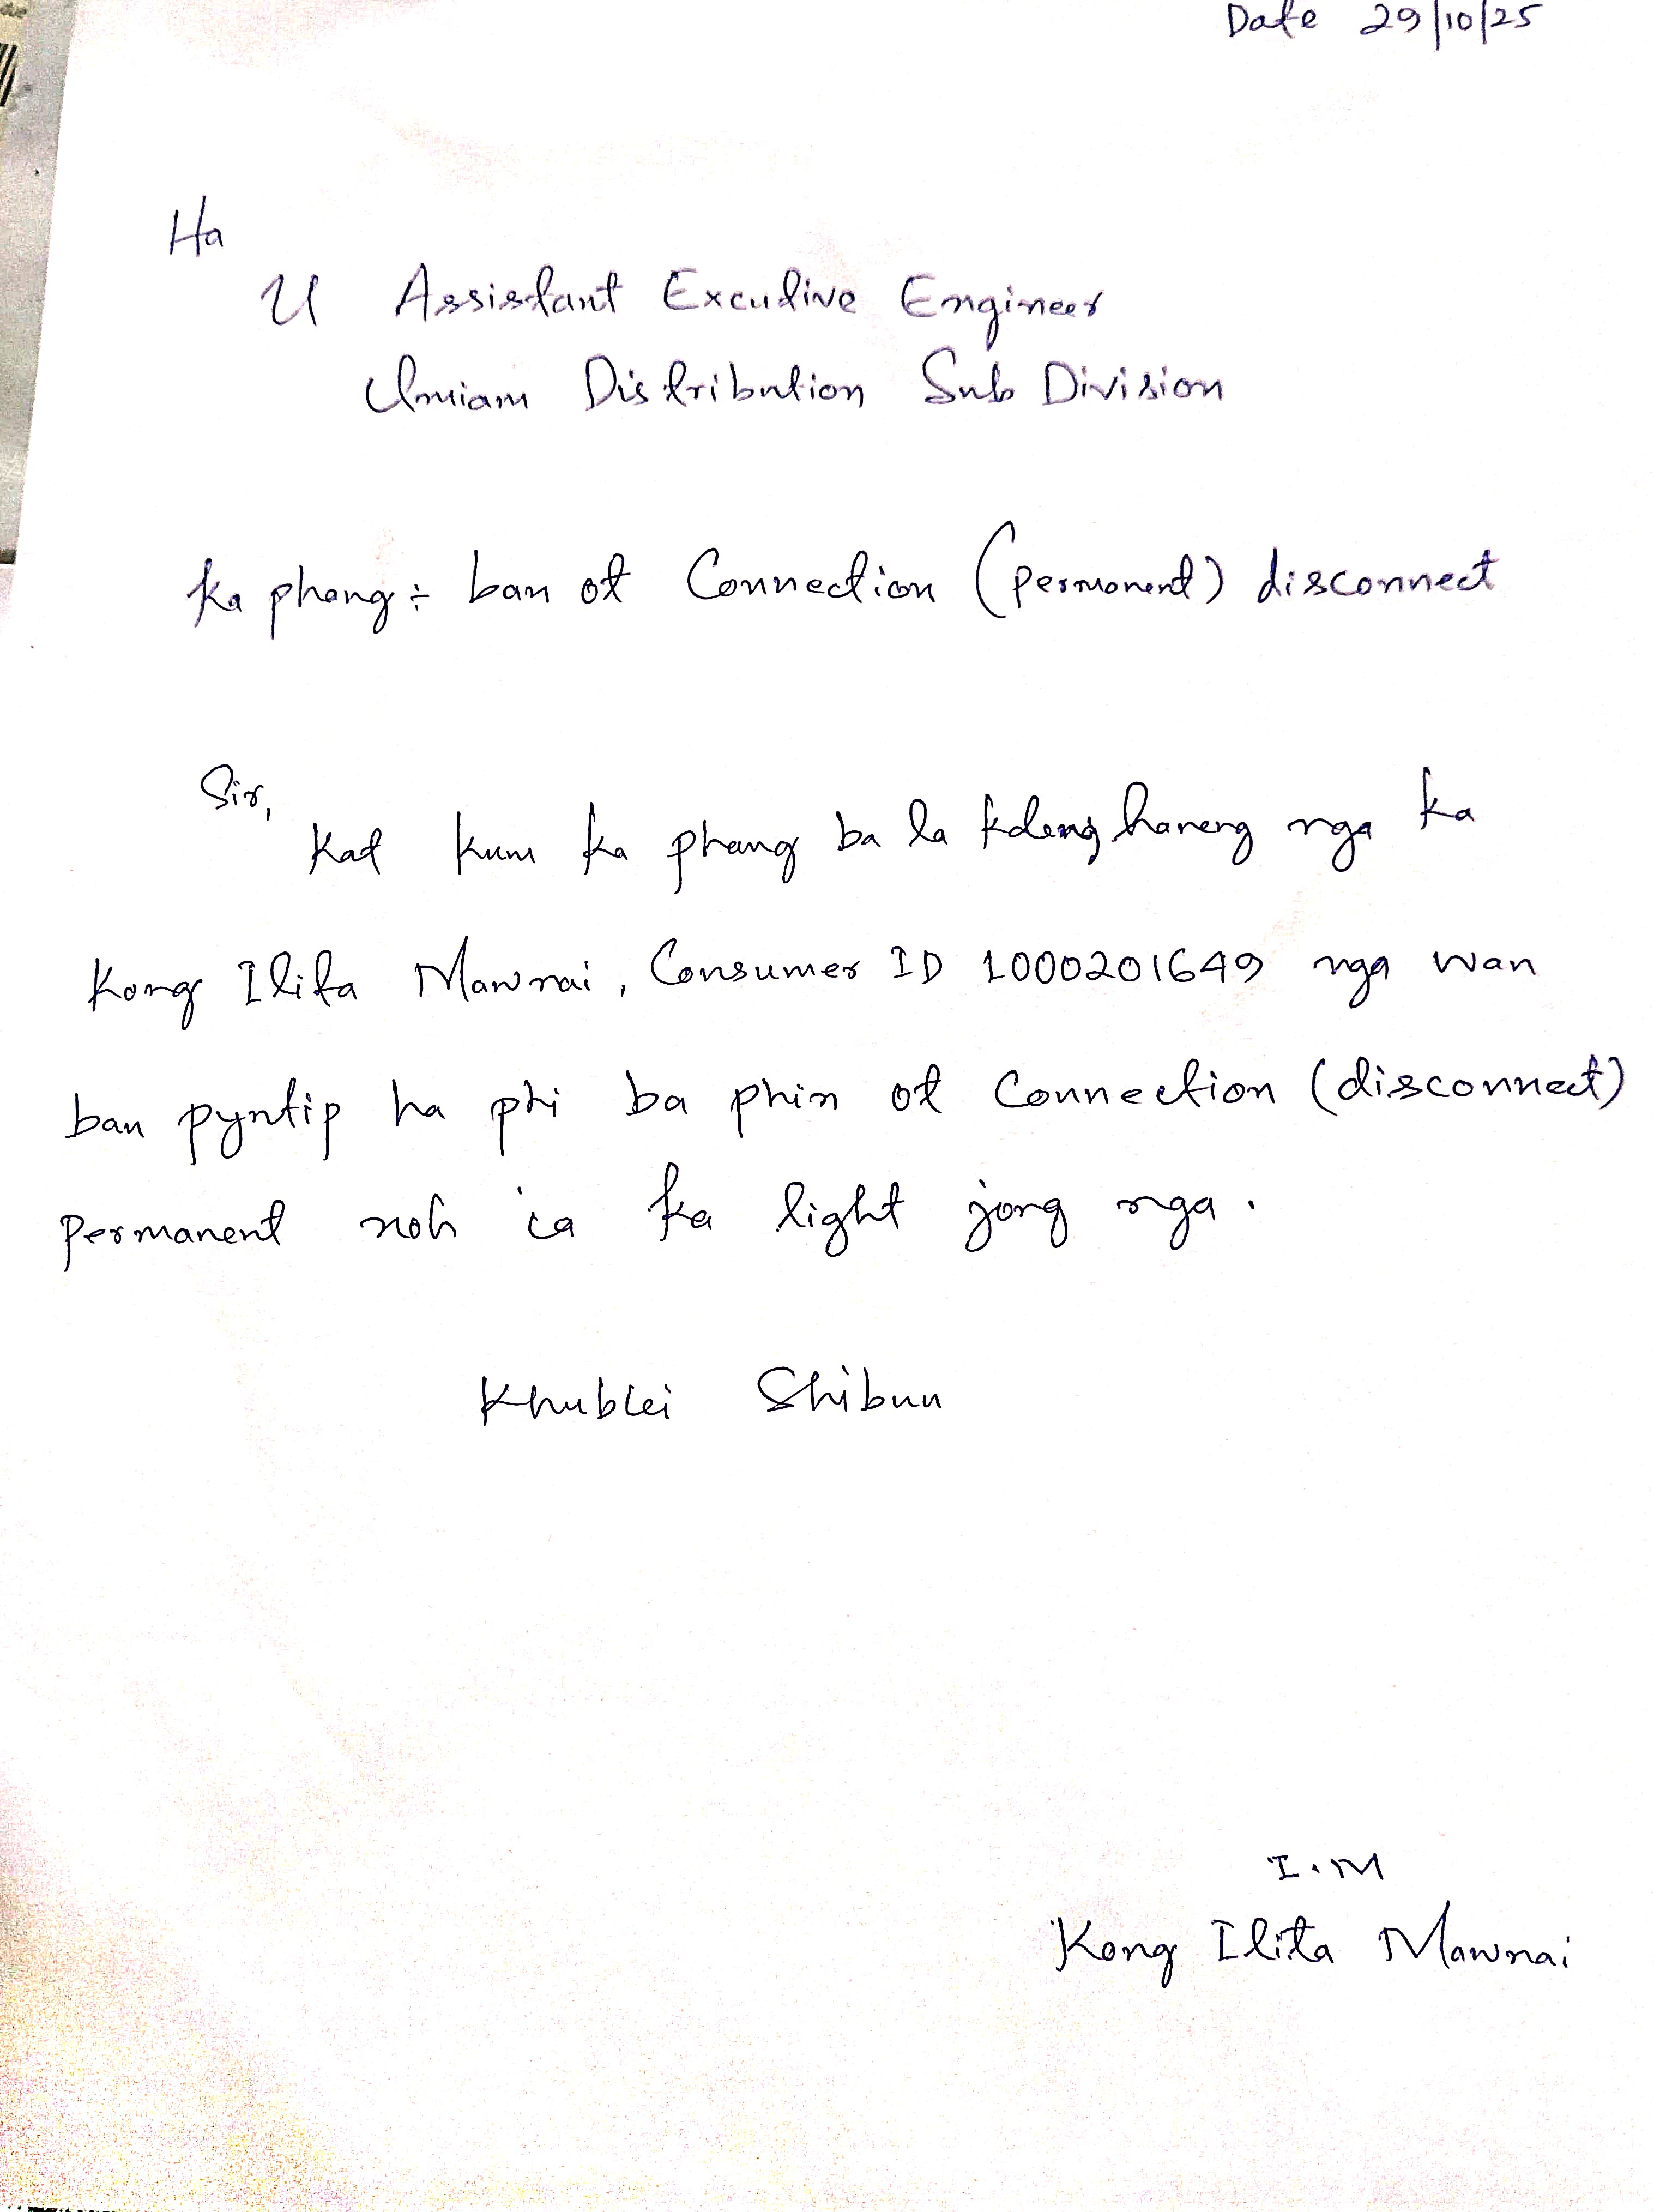 Date 29/10/25
Ha
U Assistant Excutive Engineer
Umiam Distribution Sub Division
ka phang ÷ ban ot Connection (permonent) disconnect
Sir,
Kat kum ka phang ba la kdeng haneng nga ka
Kong Ilita Mawnai, Consumer ID 1000201649 nga wan
ban pyntip ha phi ba phin ot Connection (disconnect)
permanent noh ia ka light jong nga.
Khublei Shibun
I.M
Kong Ilita Mawnai